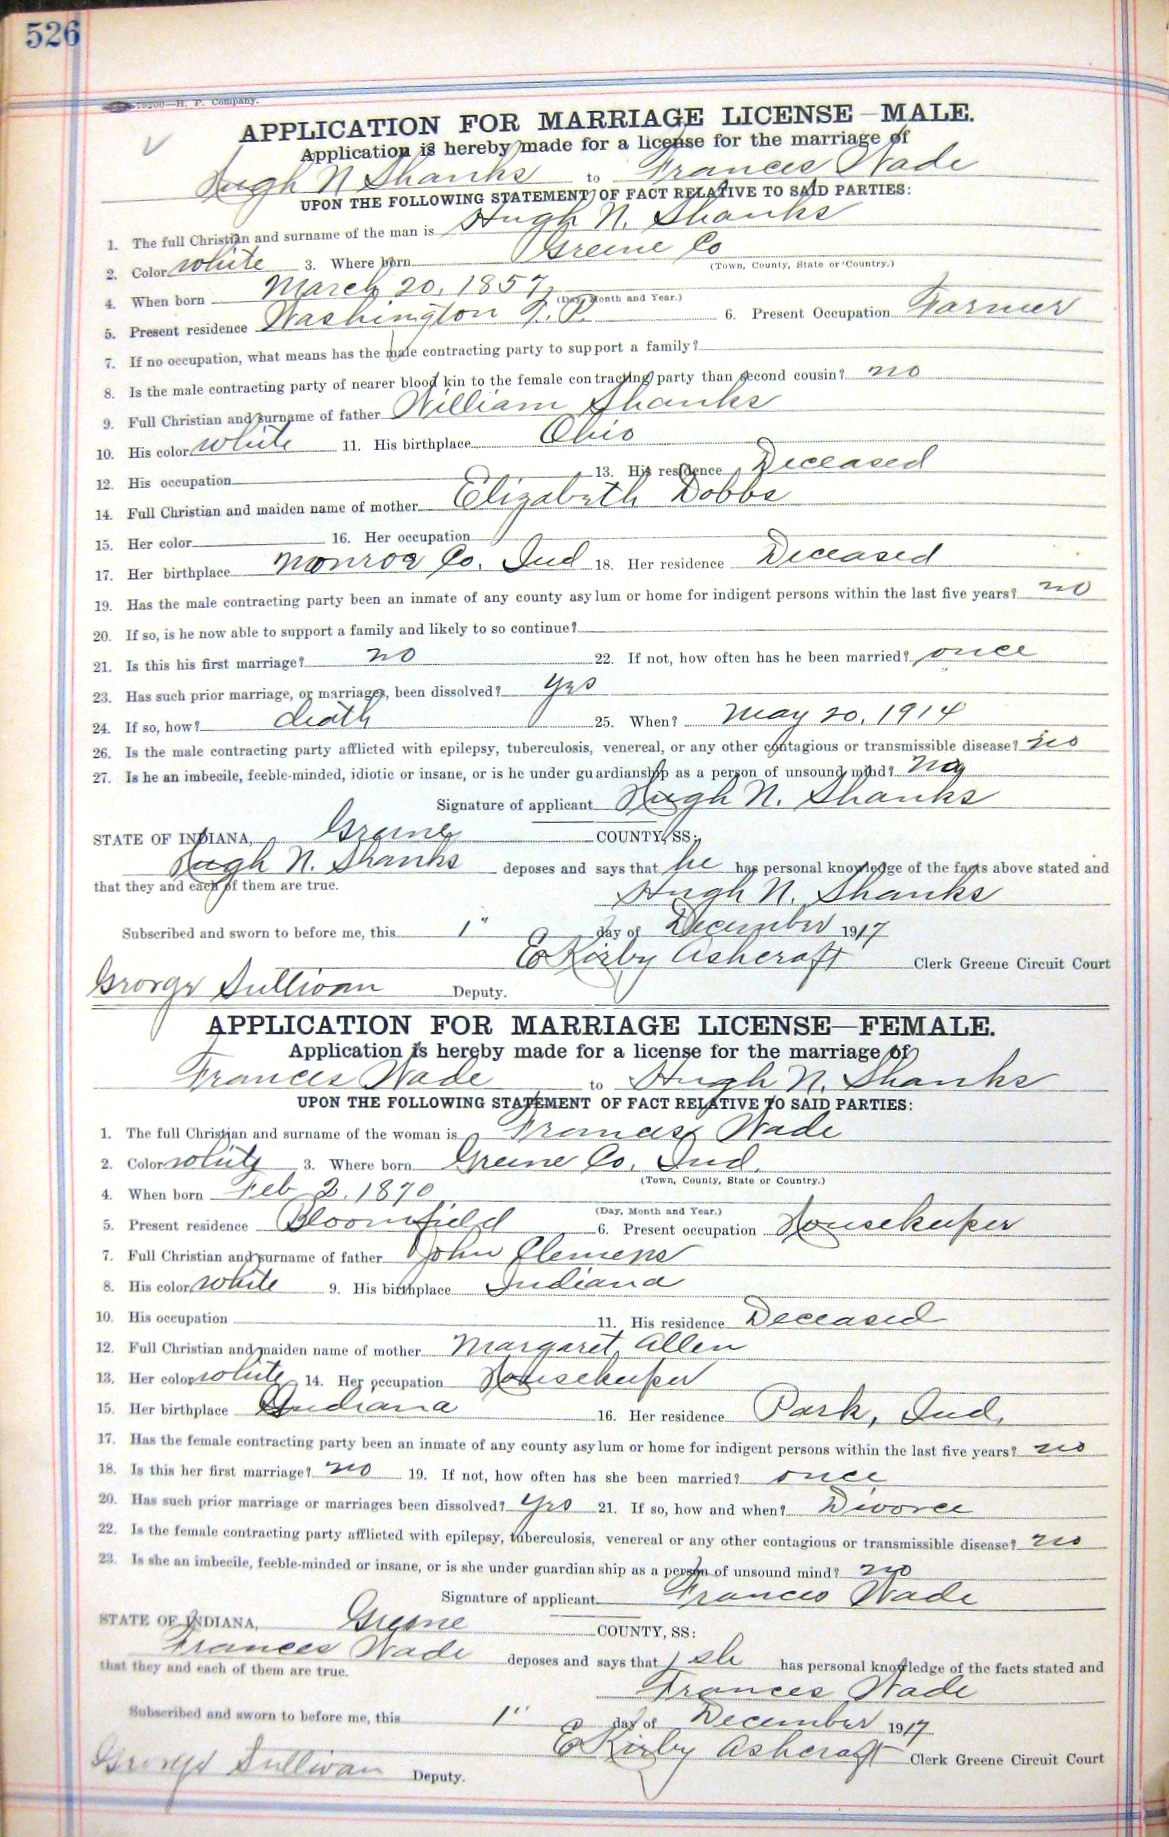 526
79200—H. P. Company.
APPLICATION FOR MARRIAGE LICENSE—MALE.
Application is hereby made for a license for the marriage of
Hugh N Shanks to Frances Wade
UPON THE FOLLOWING STATEMENT OF FACT RELATIVE TO SAID PARTIES:
1. The full Christian and surname of the man is Hugh N. Shanks
2. Color white 3. Where born Greene Co
(Town, County, State or Country.)
4. When born March 20, 1857
(Day, Month and Year.)
5. Present residence Washington T.P. 6. Present Occupation Farmer
7. If no occupation, what means has the male contracting party to support a family?
8. Is the male contracting party of nearer blood kin to the female contracting party than second cousin? no
9. Full Christian and surname of father William Shanks
10. His color white 11. His birthplace Ohio
12. His occupation 13. His residence Deceased
14. Full Christian and maiden name of mother Elizabeth Dobbs
15. Her color 16. Her occupation
17. Her birthplace Monroe Co. Ind 18. Her residence Deceased
19. Has the male contracting party been an inmate of any county asylum or home for indigent persons within the last five years? no
20. If so, is he now able to support a family and likely to so continue?
21. Is this his first marriage? no 22. If not, how often has he been married? once
23. Has such prior marriage, or marriages, been dissolved? yes
24. If so, how? death 25. When? May 20, 1914
26. Is the male contracting party afflicted with epilepsy, tuberculosis, venereal, or any other contagious or transmissible disease? no
27. Is he an imbecile, feeble-minded, idiotic or insane, or is he under guardianship as a person of unsound mind? no
Signature of applicant Hugh N. Shanks
STATE OF INDIANA, Greene COUNTY, SS:
Hugh N. Shanks deposes and says that he has personal knowledge of the facts above stated and
that they and each of them are true.
Hugh N. Shanks
Subscribed and sworn to before me, this 1" day of December 1917
E Kirby Ashcraft Clerk Greene Circuit Court
George Sullivan Deputy.
APPLICATION FOR MARRIAGE LICENSE—FEMALE.
Application is hereby made for a license for the marriage of
Frances Wade to Hugh N. Shanks
UPON THE FOLLOWING STATEMENT OF FACT RELATIVE TO SAID PARTIES:
1. The full Christian and surname of the woman is Frances Wade
2. Color white 3. Where born Greene Co. Ind.
(Town, County, State or Country.)
4. When born Feb 2, 1870
(Day, Month and Year.)
5. Present residence Bloomfield 6. Present occupation Housekeeper
7. Full Christian and surname of father John Clemens
8. His color white 9. His birthplace Indiana
10. His occupation 11. His residence Deceased
12. Full Christian and maiden name of mother Margaret Allen
13. Her color white 14. Her occupation Housekeeper
15. Her birthplace Indiana 16. Her residence Park, Ind.
17. Has the female contracting party been an inmate of any county asylum or home for indigent persons within the last five years? no
18. Is this her first marriage? no 19. If not, how often has she been married? once
20. Has such prior marriage or marriages been dissolved? yes 21. If so, how and when? Divorce
22. Is the female contracting party afflicted with epilepsy, tuberculosis, venereal or any other contagious or transmissible disease? no
23. Is she an imbecile, feeble-minded or insane, or is she under guardianship as a person of unsound mind? no
Signature of applicant Frances Wade
STATE OF INDIANA, Greene COUNTY, SS:
Frances Wade deposes and says that she has personal knowledge of the facts stated and
that they and each of them are true.
Frances Wade
Subscribed and sworn to before me, this 1" day of December 1917
E Kirby Ashcraft Clerk Greene Circuit Court
George Sullivan Deputy.